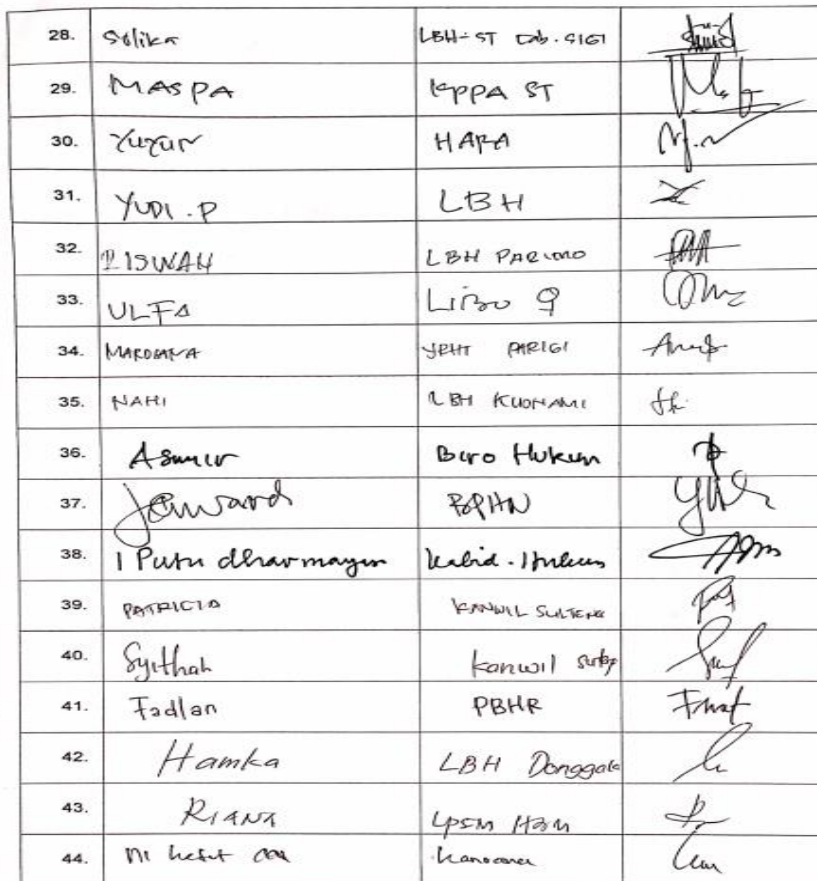 28. Solika LBH-ST Cab. SIGI
29. MASPA KPPA ST
30. Yuyun HAPA
31. YUDI . P LBH
32. RISWAH LBH PARIMO
33. ULFA LIBU
34. MARDIANA YPHI PARIGI
35. NAHI LBH
36. Asmir Biro Hukum
37. BPHN
38. I Putu dharmayasa Kabid. Hukum
39. PATRICIA KANWIL SULTENG
40. Syithah Kanwil
41. Fadlan PBHR
42. Hamka LBH Donggala
43. RIANA LPSM
44. Ni Ketut